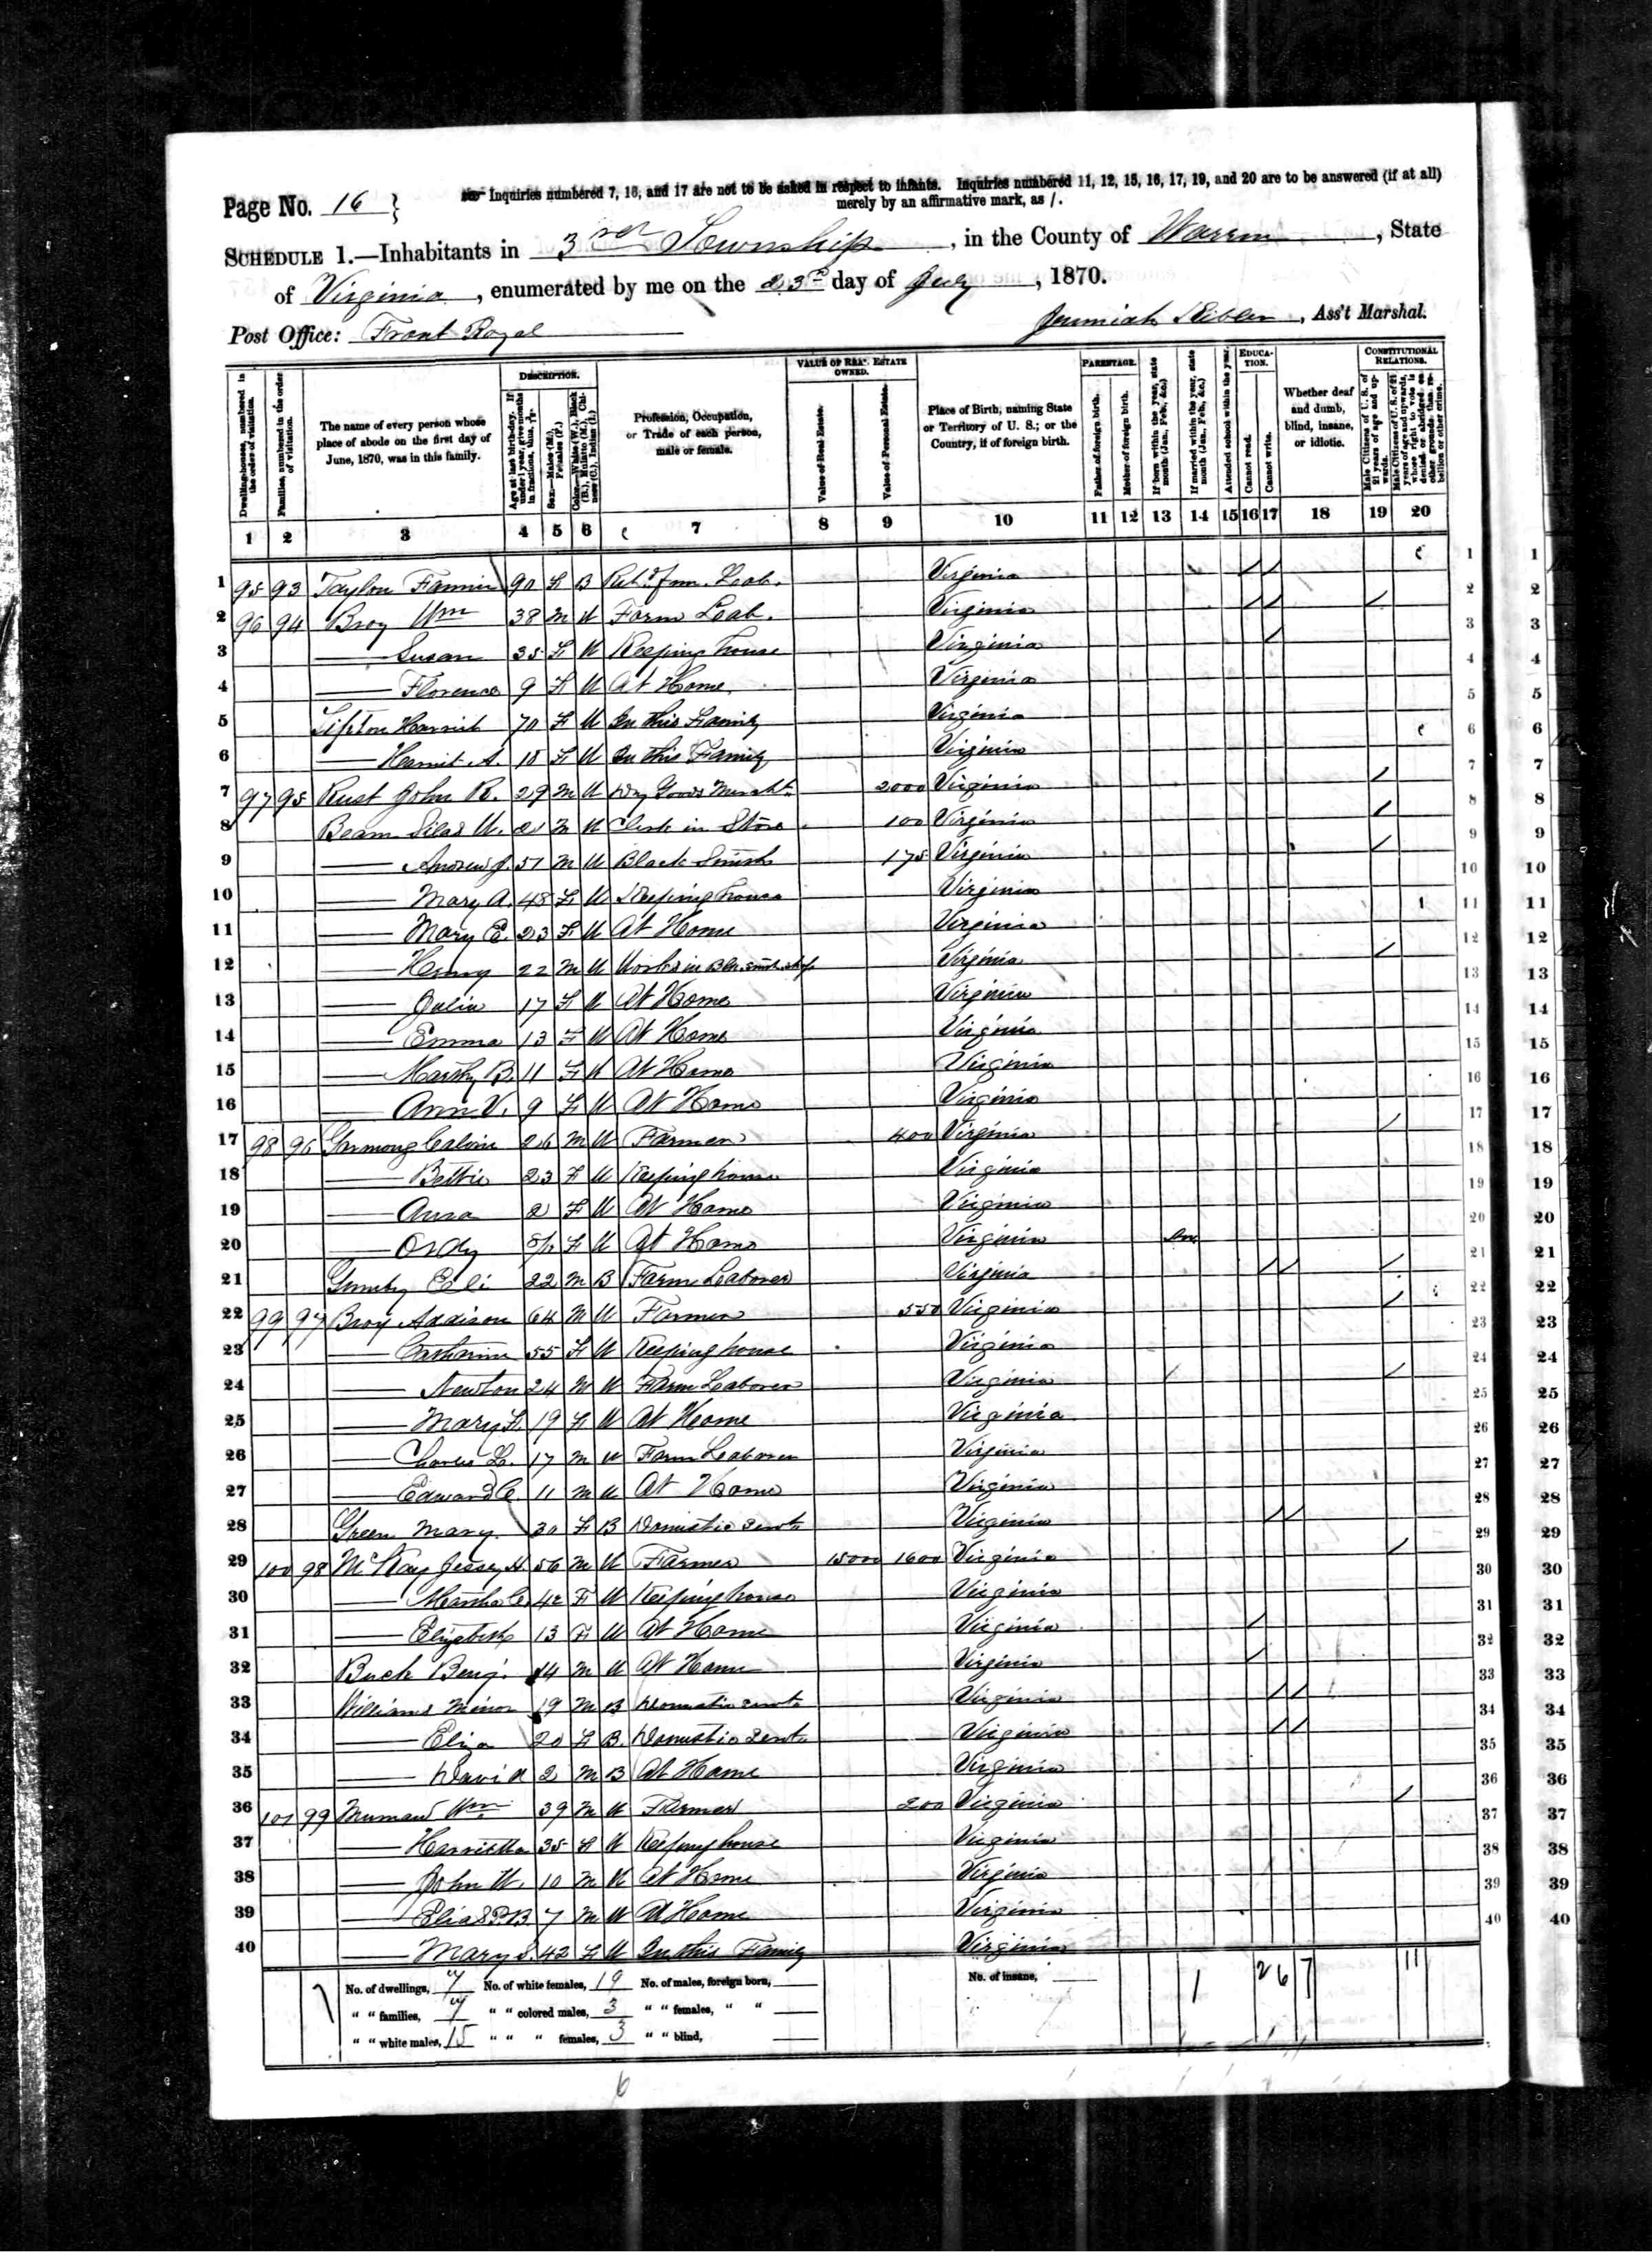 Page No. 16 } Inquiries numbered 7, 16, and 17 are not to be asked in respect to infants. Inquiries numbered 11, 12, 15, 16, 17, 19, and 20 are to be answered (if at all)
merely by an affirmative mark, as /.
SCHEDULE 1.—Inhabitants in 3rd Township, in the County of Warren, State
of Virginia, enumerated by me on the 23rd day of July, 1870.
Post Office: Front Royal
Jeremiah Kibler, Ass't Marshal.
Dwelling-houses, numbered in the order of visitation.
Families, numbered in the order of visitation.
The name of every person whose place of abode on the first day of June, 1870, was in this family.
DESCRIPTION.
Age at last birth-day. If under 1 year, give months in fractions, thus, 3/12.
Sex.—Males (M.), Females (F.)
Color.—White (W.), Black (B.), Mulatto (M.), Chinese (C.), Indian (I.)
Profession, Occupation, or Trade of each person, male or female.
VALUE OF REAL ESTATE OWNED.
Value of Real Estate.
Value of Personal Estate.
Place of Birth, naming State or Territory of U. S.; or the Country, if of foreign birth.
PARENTAGE.
Father of foreign birth.
Mother of foreign birth.
If born within the year, state month (Jan., Feb., &c.)
If married within the year, state month (Jan., Feb., &c.)
Attended school within the year.
EDUCATION.
Cannot read.
Cannot write.
Whether deaf and dumb, blind, insane, or idiotic.
CONSTITUTIONAL RELATIONS.
Male Citizens of U. S. of 21 years of age and upwards.
Male Citizens of U. S. of 21 years of age and upwards, whose right to vote is denied or abridged on other grounds than rebellion or other crime.
1 2 3 4 5 6 7 8 9 10 11 12 13 14 15 16 17 18 19 20
1 95 93 Taylor Fannie 90 F B Ret'd Frm. Leab. Virginia / / 1
2 96 94 Broy Wm 38 M W Farm Leab. Virginia / / / 2
3 — Susan 35 F W Keeping house Virginia / 3
4 — Florence 9 F W At Home Virginia 4
5 Tipton Harriet 70 F W In this Family Virginia 5
6 — Harriet A. 18 F W In this Family Virginia 6
7 97 95 Rust John R. 29 M W Dry Goods Mercht 2000 Virginia / 7
8 Beam Silas W. 21 M W Clerk in Store 100 Virginia / 8
9 — Andrew J. 51 M W Black Smith 175 Virginia / 9
10 — Mary A. 48 F W Keeping house Virginia 10
11 — Mary E. 23 F W At Home Virginia 11
12 — Henry 22 M W Works in Blk. smth. shop Virginia / 12
13 — Julia 17 F W At Home Virginia 13
14 — Emma 13 F W At Home Virginia 14
15 — Marthy B. 11 F W At Home Virginia 15
16 — Ann V. 9 F W At Home Virginia 16
17 98 96 Garmong Calvin 26 M W Farmer 400 Virginia / 17
18 — Bettie 23 F W Keeping house Virginia 18
19 — Anna 2 F W At Home Virginia 19
20 — Ordy F W At Home Virginia 20
21 Eli 22 M B Farm Leaborer Virginia / / / 21
22 99 97 Broy Addison 64 M W Farmer 550 Virginia / 22
23 — Catharine 55 F W Keeping house Virginia 23
24 — Newton 24 M W Farm Leaborer Virginia / 24
25 — Mary F. 19 F W At Home Virginia 25
26 — Charles L. 17 M W Farm Leaborer Virginia 26
27 — Edward C. 11 M W At Home Virginia 27
28 Green Mary 30 F B Domestic Servt. Virginia / / 28
29 100 98 McKay Jessey H. 56 M W Farmer 15000 1600 Virginia / 29
30 — Martha C. 42 F W Keeping house Virginia 30
31 — Elizabeth 13 F W At Home Virginia / 31
32 Buck Benj. 14 M W At Home Virginia / 32
33 Williams Minor 19 M B Domestic servt. Virginia / / 33
34 — Eliza 20 F B. Domestic Servt. Virginia / / 34
35 — David 2 M B At Home Virginia 35
36 101 99 Mumaw Wm. 39 M W Farmer 200 Virginia / 36
37 — Harrietta 35 F W Keeping house Virginia 37
38 — John W. 10 M W At Home Virginia 38
39 — Elias P. B 7 M W At Home Virginia 39
40 — Mary S. 42 F W In this Family Virginia 40
No. of dwellings, 7 No. of white females, 19 No. of males, foreign born, — No. of insane, — 1 2 6 7 11
" " families, 7 " " colored males, 3 " " females, " " —
" " white males, 15 " " " females, 3 " " blind, —